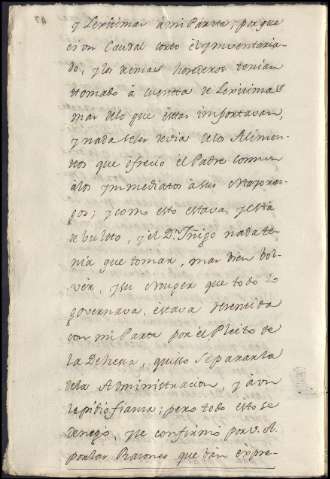 y Lexitimas à mi Parte; porque
es un Caudal cierto è ymventaria-
do, y los demas herederos tenian
tomado à cuenta de Lexitimas
mas delo que éstas importavan,
y nada seles devia delos Alimen-
tos que ofrecio el Padre comun
àlos ynmediatos àsus Mayoraz-
gos; y como esto estava, y està
de vulto, y el Dn. Yñigo nadate-
nia que tomar, mas vien vol-
ver, y su Muger que todo lo
governava, estava
con mi Parte por el Pleito de
la Dehesa, quiso separarla
dela Administracion, y aun
lepidio fianza; pero todo esto se
denegò, y se confirmò por V. A.
por las Razones que dan expre-